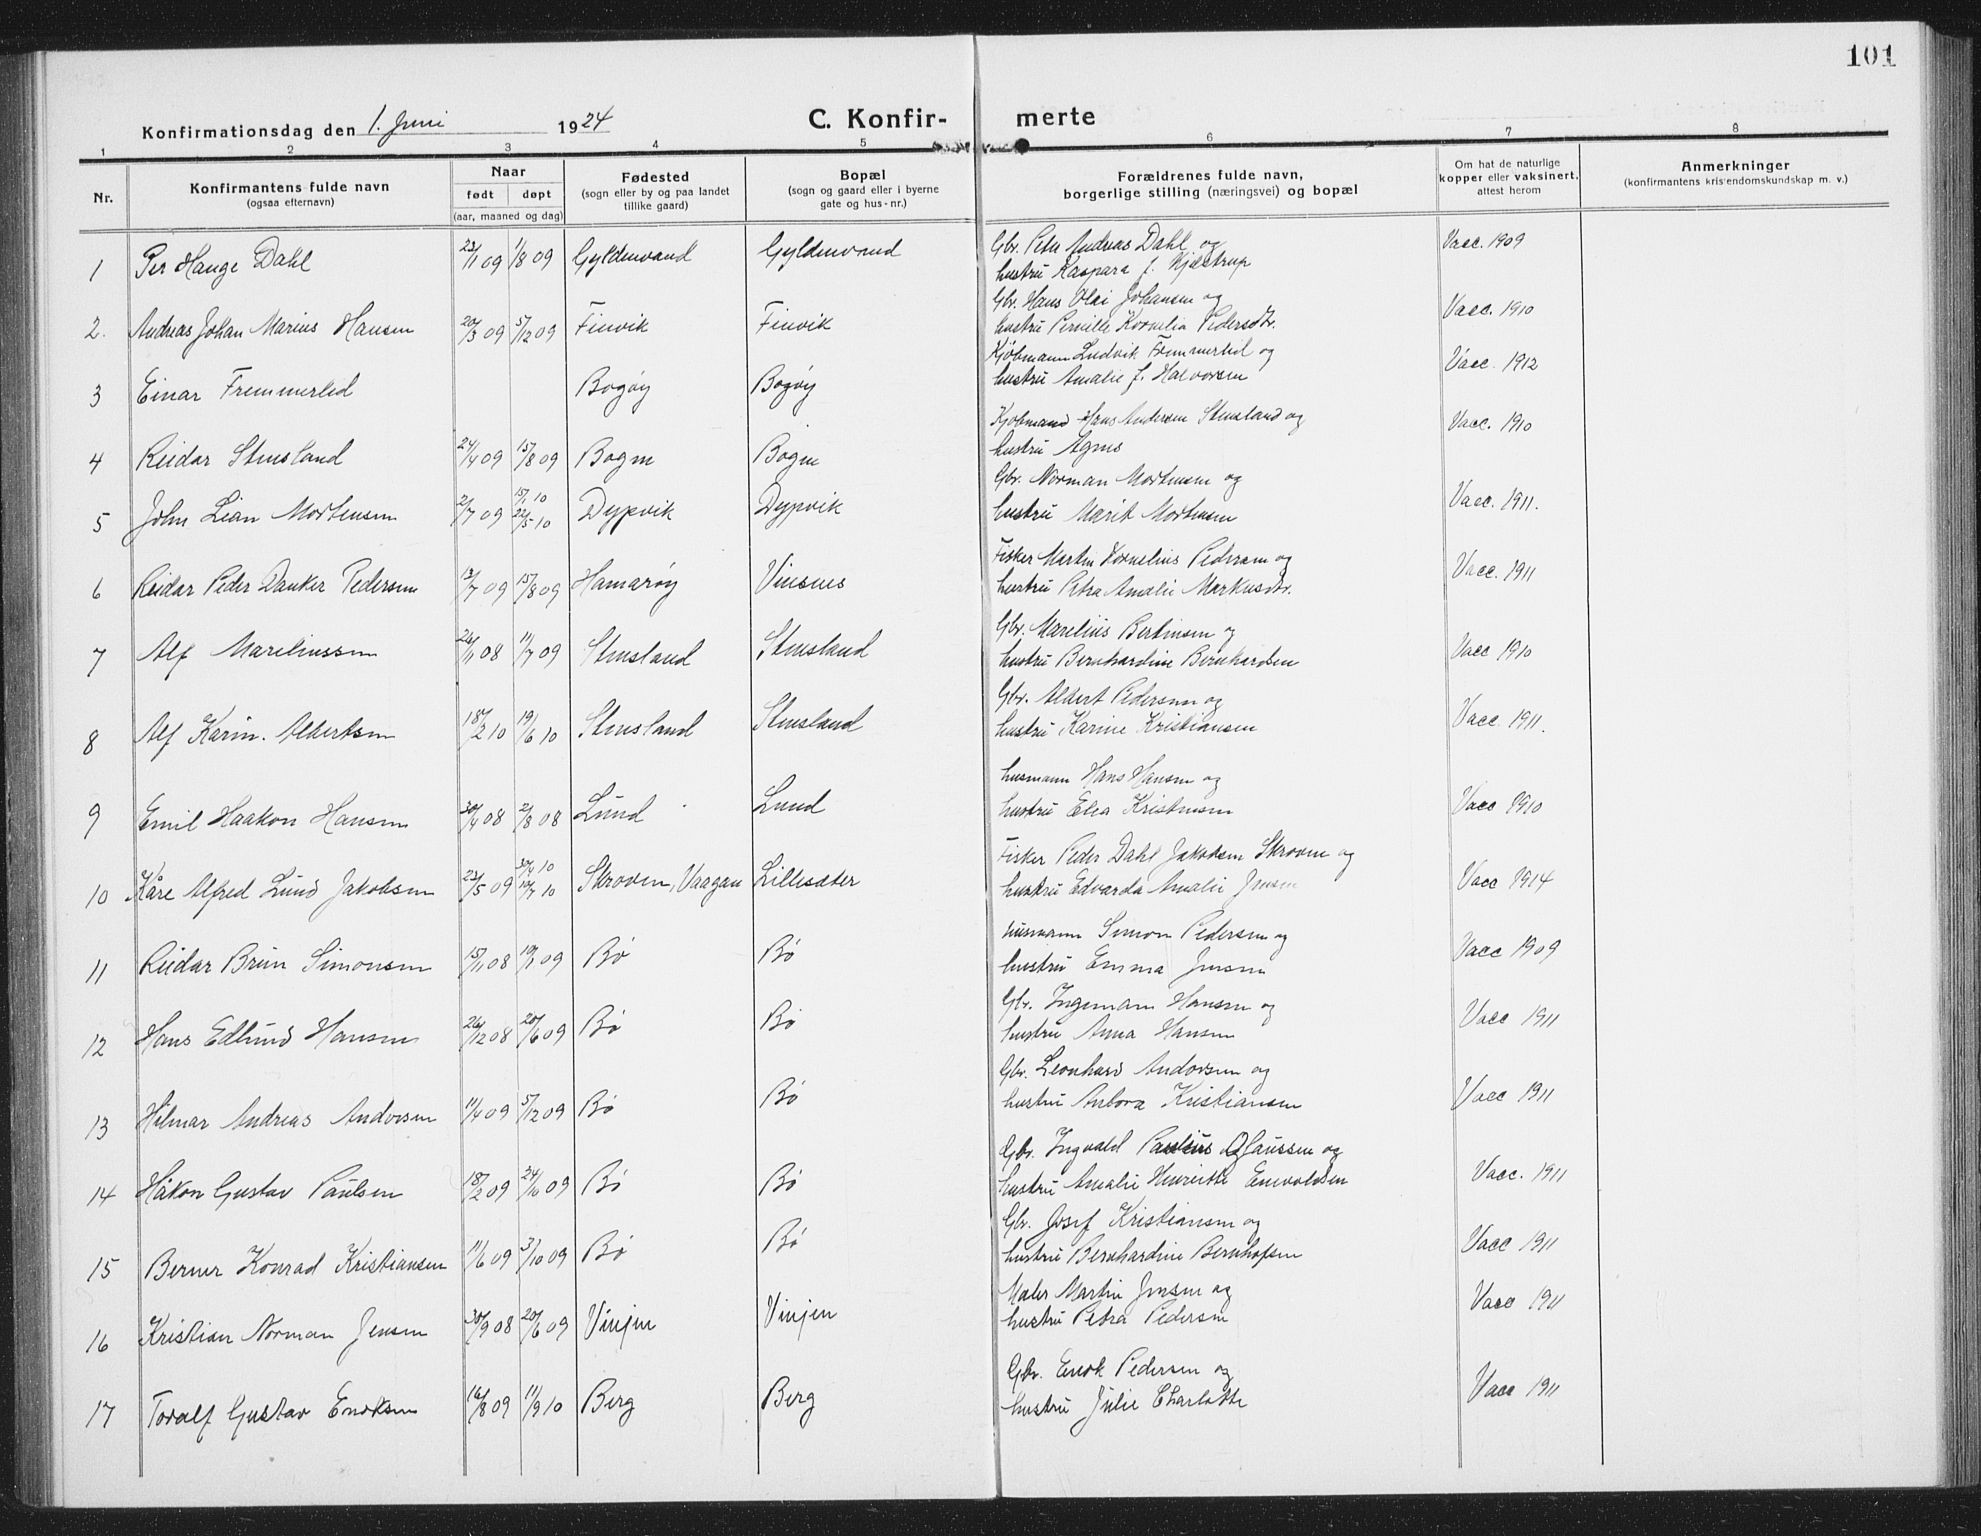 101
Konfirmationsdag den 1. Juni 1924 C. Konfir- merte
1 2 3 4 5 6 7 8
Nr. Konfirmantens fulde navn (ogsaa efternavn) Naar født døpt (aar, maaned og dag) Fødested (sogn eller by og paa landet tillike gaard) Bopæl (sogn og gaard eller i byerne gate og hus-nr.) Forældrenes fulde navn, borgerlige stilling (næringsvei) og bopæl Om hat de naturlige kopper eller vaksinert, attest herom Anmerkninger (konfirmantens kristendomskundskap m. v.)
1 Per Hauge Dahl 23/1 09 1/8 09 Gyldenvand Gyldenvand Gbr. Peter Andreas Dahl og
hustru Kaspara f. Kjelstrup Vacc. 1909
2. Andreas Johan Marius Hansen 20/3 09 5/12 09 Finvik Finvik Gbr. Hans Olai Johansen og
hustru Pernille Kornelia Pedersdtr. Vacc. 1910
3 Einar Fremmerlid Bogøy Bogøy Kjøbmann Ludvik Fremmerlid og
hustru Amalie f. Halvorsen Vacc. 1912
4 Reidar Stensland 24/4 09 15/8 09 Bogen Bogen Kjøbmand Hans Andersen Stensland og
hustru Agnes Vacc. 1910
5 John Lian Mortensen 2/7 09 15/1 10 22/5 10 Dypvik Dypvik Gbr. Norman Mortensen og
hustru Marit Mortensen Vacc. 1911.
6 Reidar Peder Danker Pedersen 13/7 09 15/8 09 Hamarøy Vinsnes Fisker Martin Kornelius Pedersen og
hustru Petra Amalie Markusdtr. Vacc. 1911
7 Alf Mareliussen 26/11 08 11/7 09 Stensland Stensland Gbr. Marelius Bertinsen og
hustru Bernhardine Bernhardsen Vacc 1910
8 Alf Karin. Albertsen 18/2 10 19/6 10 Stensland Stensland Gbr. Albert Pedersen og
hustru Karine Kristiansen Vacc. 1911.
9 Emil Haakon Hansen 30/4 08 2/8 08 Lund Lund husmann Hans Hansen og
hustru Elea Kristensen Vacc 1910
10 Kåre Alfred Lund Jakobsen 23/5 09 30/4 10 10/7 10 Skroven, Vaagan Lillesæter Fisker Peder Dahl Jakobsen Skroven og
hustru Edvarda Amalie Jensen Vacc 1914
11 Reidar Brun Simonsen 15/11 08 10/1 09 Bø Bø husmann Simon Pedersen og
hustru Emma Jensen Vacc 1909
12 Hans Edlund Hansen 26/12 08 20/6 09 Bø Bø Gbr. Ingemann Hansen og
hustru Anna Hansen Vacc 1911
13 Hilmar Andreas Andorsen 11/4 09 5/12 09 Bø Bø Gbr. Leonhard Andorsen og
hustru Anbora Kristiansen Vacc 1911
14 Håkon Gustav Paulsen 18/2 09 24/10 09 Bø Bø Gbr. Ingvald Paulius Olaussen og
hustru Amalie Henriette Enevoldsen Vacc. 1911
15 Berner Konrad Kristiansen 11/6 09 3/10 09 Bø Bø Gbr. Josef Kristiansen og
hustru Bernhardine Bernhofsen Vacc 1911
16 Kristian Norman Jensen 30/9 08 20/6 09 Vinjen Vinjen Maler Martin Jensen og
hustru Petra Pedersen Vacc 1911
17 Toralf Gustav Enoksen 16/8 09 11/9 10 Berg Berg Gbr. Enok Pedersen og
hustru Julie Charlotte Vacc 1911